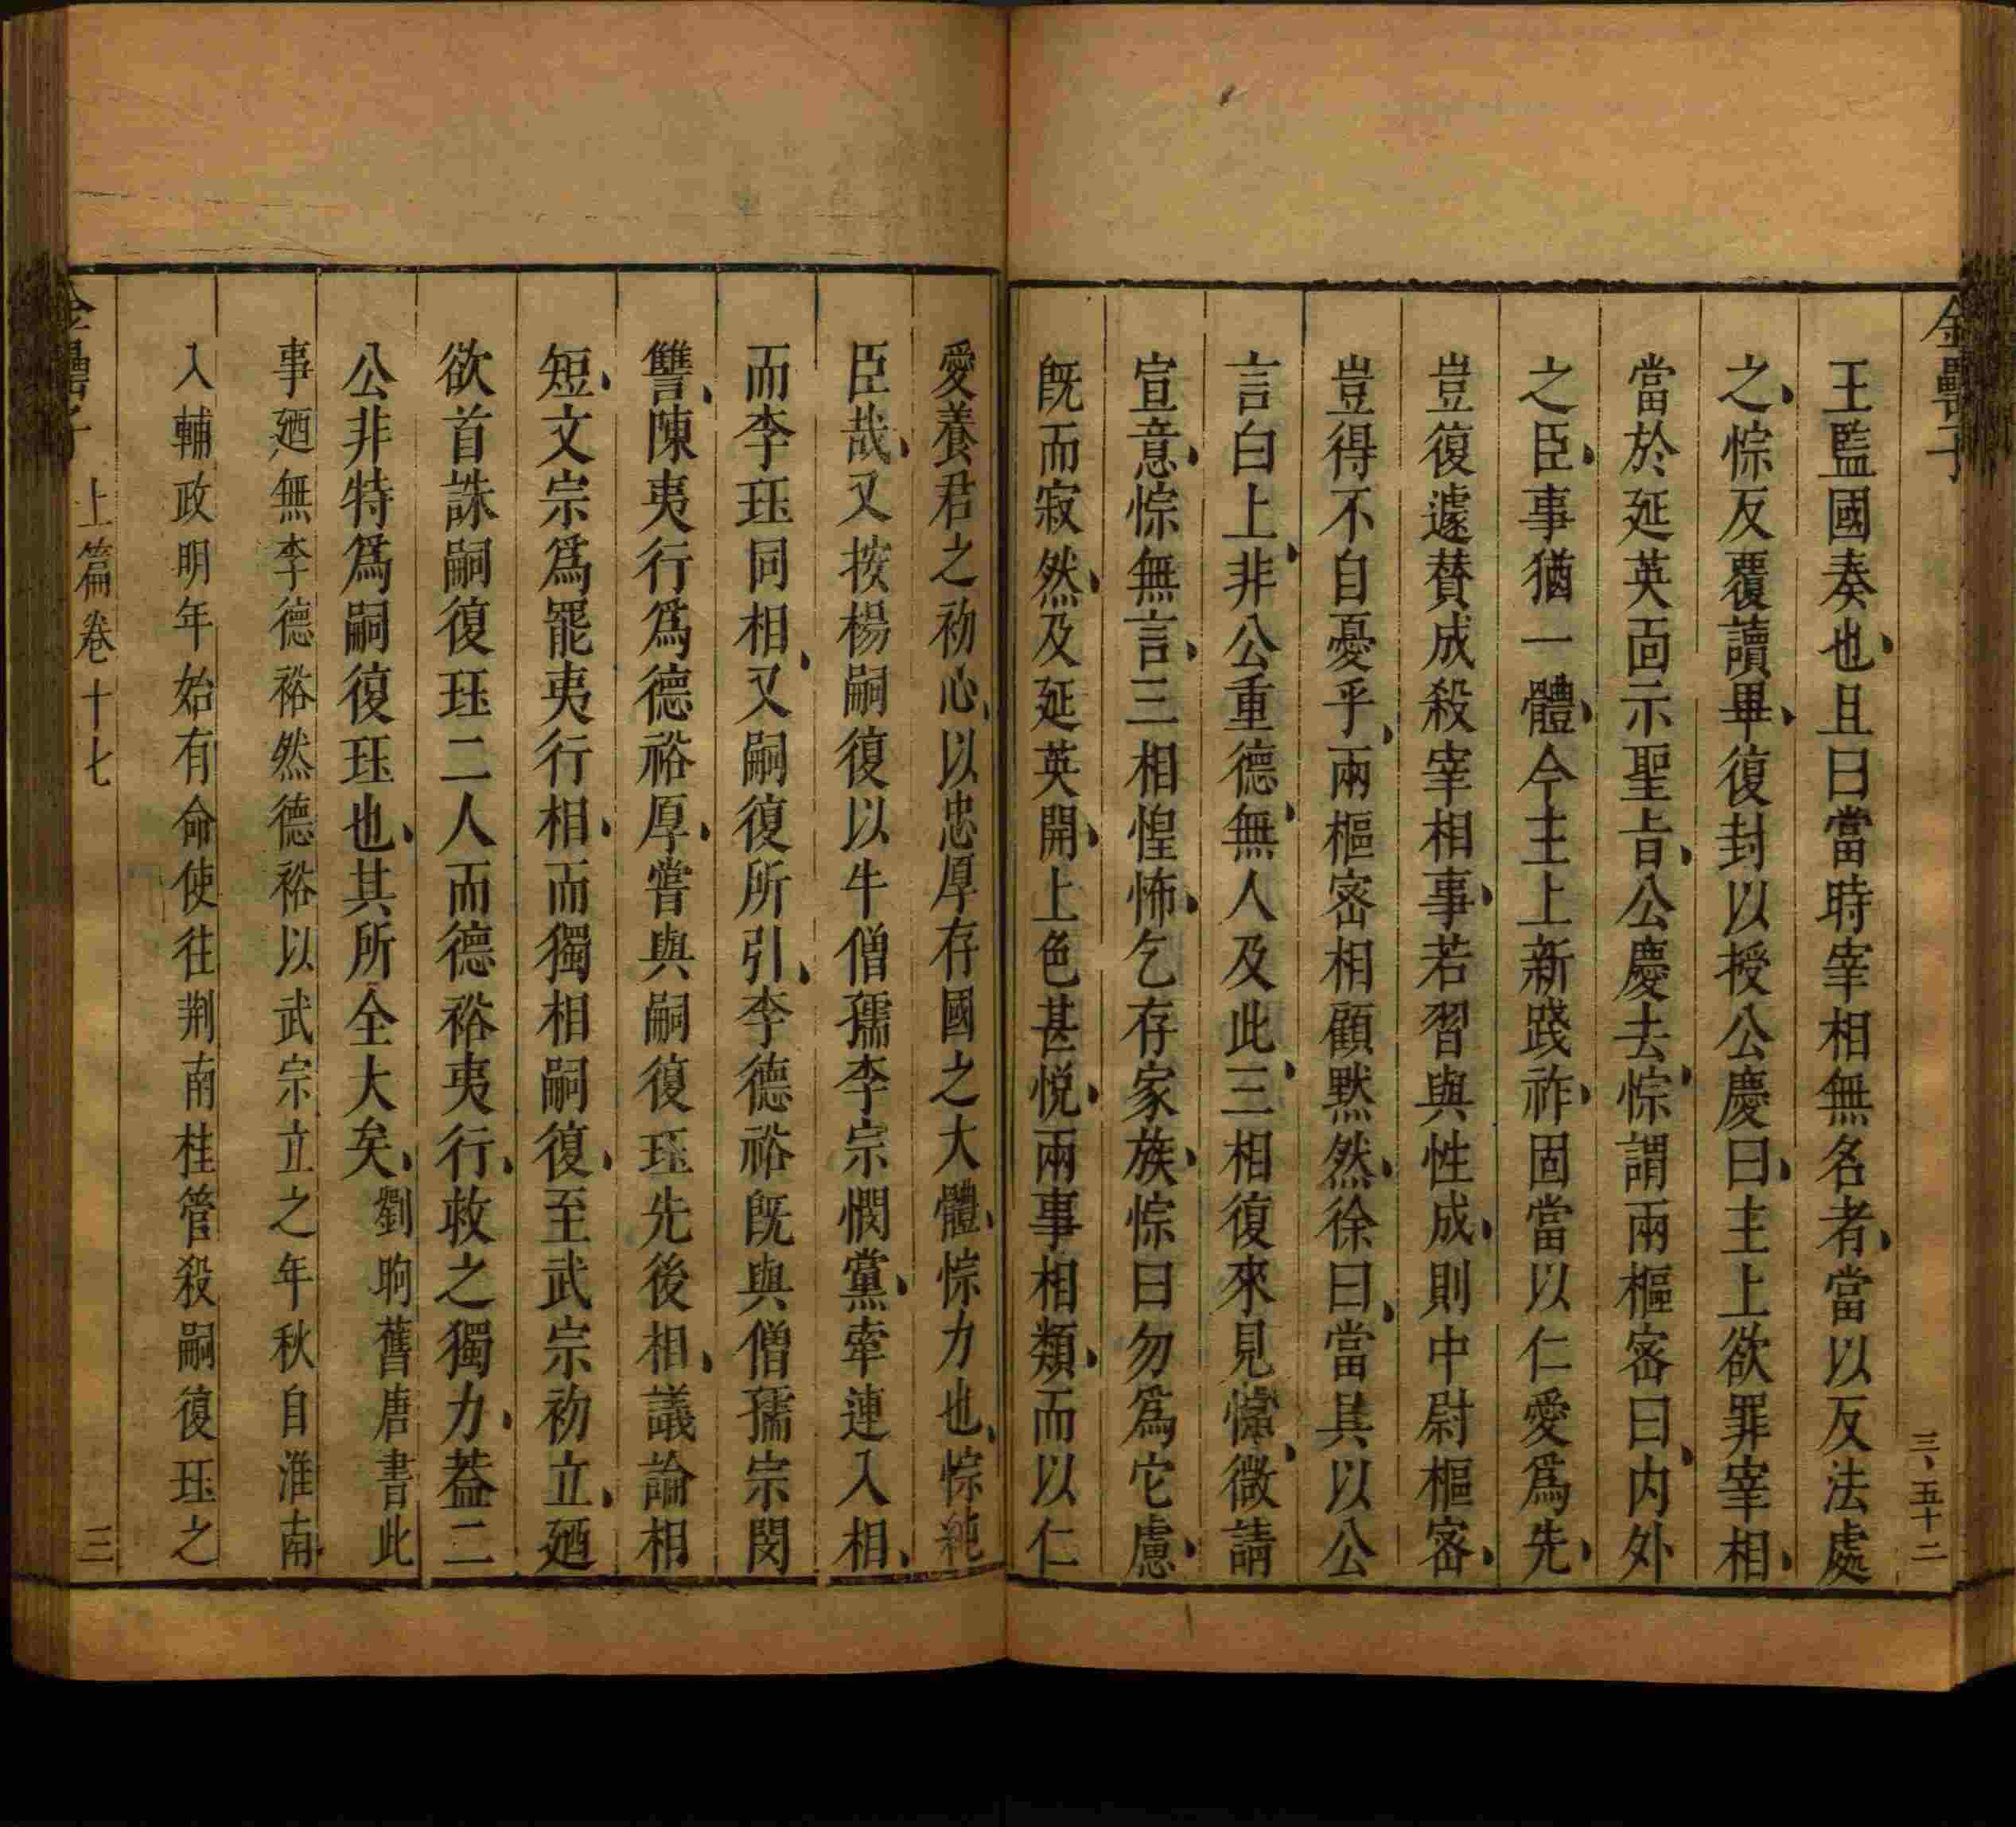 金罍子
三、五十二
王監國奏也且曰當時宰相無名者當以反法處
之悰反覆讀畢復封以授公慶曰主上欲罪宰相
當於延英面示聖旨公慶去悰謂兩樞密曰内外
之臣事猶一體今主上新踐祚固當以仁愛爲先
豈復遽賛成殺宰相事若習與性成則中尉樞密
豈得不自憂乎兩樞密相顧默然徐曰當具以公
言白上非公重德無人及此三相復來見悰微請
宣意悰無言三相惶怖乞存家族悰曰勿爲它慮
旣而寂然及延英開上色甚悦兩事相類而以仁
愛養君之初心以忠厚存國之大體悰力也悰純
臣哉又按楊嗣復以牛僧孺李宗憫黨牽連入相
而李珏同相又嗣復所引李德裕旣與僧孺宗閔
讐陳夷行爲德裕厚嘗與嗣復珏先後相議論相
短文宗爲罷夷行相而獨相嗣復至武宗初立廼
欲首誅嗣復珏二人而德裕夷行救之獨力葢二
公非特爲嗣復珏也其所全大矣劉昫舊唐書此
事廼無李德裕然德裕以武宗立之年秋自淮南
入輔政明年始有命使往荆南桂管殺嗣復珏之
金罍子
上篇卷十七
三